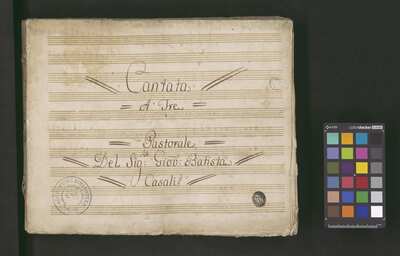 Cantata
A Tre
Pastorale
Del Sig.re Giov: Batista
Casali
colorchecker